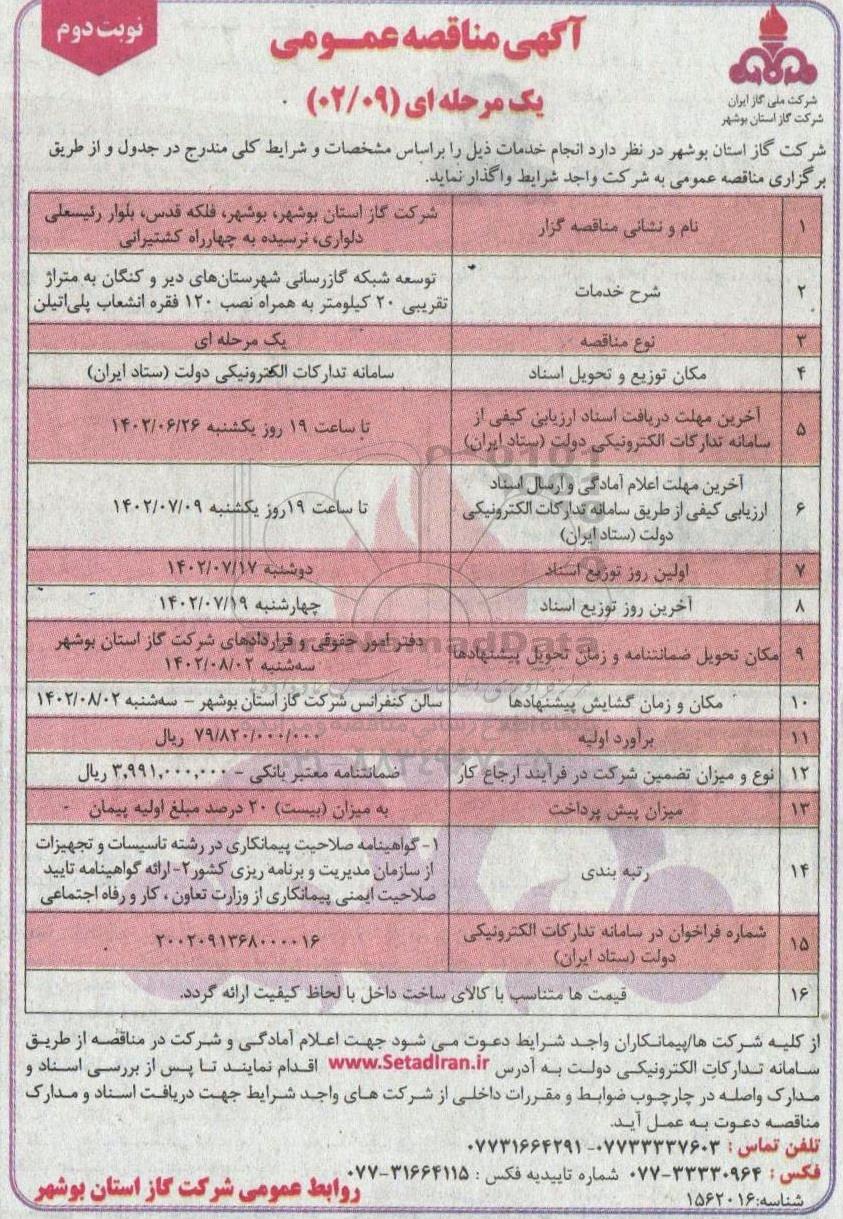 نوبت دوم
آگهی مناقصه عمومی
یک مرحله ای (۰۲/۰۹)
شرکت ملی گاز ایران
شرکت گاز استان بوشهر
شرکت گاز استان بوشهر در نظر دارد انجام خدمات ذیل را براساس مشخصات و شرایط کلی مندرج در جدول و از طریق
برگزاری مناقصه عمومی به شرکت واجد شرایط واگذار نماید.
۱ نام و نشانی مناقصه گزار شرکت گاز استان بوشهر، بوشهر، فلکه قدس، بلوار رئیسعلی
دلواری، نرسیده به چهارراه کشتیرانی
۲ شرح خدمات توسعه شبکه گازرسانی شهرستان‌های دیر و کنگان به متراژ
تقریبی ۲۰ کیلومتر به همراه نصب ۱۲۰ فقره انشعاب پلی‌اتیلن
۳ نوع مناقصه یک مرحله ای
۴ مکان توزیع و تحویل اسناد سامانه تدارکات الکترونیکی دولت (ستاد ایران)
۵ آخرین مهلت دریافت اسناد ارزیابی کیفی از
سامانه تدارکات الکترونیکی دولت (ستاد ایران) تا ساعت ۱۹ روز یکشنبه ۱۴۰۲/۰۶/۲۶
۶ آخرین مهلت اعلام آمادگی و ارسال اسناد
ارزیابی کیفی از طریق سامانه تدارکات الکترونیکی
دولت (ستاد ایران) تا ساعت ۱۹روز یکشنبه ۱۴۰۲/۰۷/۰۹
۷ اولین روز توزیع اسناد دوشنبه ۱۴۰۲/۰۷/۱۷
۸ آخرین روز توزیع اسناد چهارشنبه ۱۴۰۲/۰۷/۱۹
۹ مکان تحویل ضمانتنامه و زمان تحویل پیشنهادها دفتر امور حقوقی و قراردادهای شرکت گاز استان بوشهر
سه‌شنبه ۱۴۰۲/۰۸/۰۲
۱۰ مکان و زمان گشایش پیشنهادها سالن کنفرانس شرکت گاز استان بوشهر - سه‌شنبه ۱۴۰۲/۰۸/۰۲
۱۱ برآورد اولیه ۷۹/۸۲۰/۰۰۰/۰۰۰ ریال
۱۲ نوع و میزان تضمین شرکت در فرآیند ارجاع کار ضمانتنامه معتبر بانکی - ۳,۹۹۱,۰۰۰,۰۰۰ ریال
۱۳ میزان پیش پرداخت به میزان (بیست) ۲۰ درصد مبلغ اولیه پیمان
۱۴ رتبه بندی ۱- گواهینامه صلاحیت پیمانکاری در رشته تاسیسات و تجهیزات
از سازمان مدیریت و برنامه ریزی کشور۲- ارائه گواهینامه تایید
صلاحیت ایمنی پیمانکاری از وزارت تعاون ، کار و رفاه اجتماعی
۱۵ شماره فراخوان در سامانه تدارکات الکترونیکی
دولت (ستاد ایران) ۲۰۰۲۰۹۱۳۶۸۰۰۰۰۱۶
۱۶ قیمت ها متناسب با کالای ساخت داخل با لحاظ کیفیت ارائه گردد.
از کلیه شرکت ها/پیمانکاران واجد شرایط دعوت می شود جهت اعلام آمادگی و شرکت در مناقصه از طریق
سامانه تدارکات الکترونیکی دولت به آدرس www.SetadIran.ir اقدام نمایند تا پس از بررسی اسناد و
مدارک واصله در چارچوب ضوابط و مقررات داخلی از شرکت های واجد شرایط جهت دریافت اسناد و مدارک
مناقصه دعوت به عمل آید.
تلفن تماس : ۰۷۷۳۳۳۳۷۶۰۳- ۰۷۷۳۱۶۶۴۲۹۱
فکس : ۳۳۳۳۰۹۶۴-۰۷۷ شماره تاییدیه فکس : ۳۱۶۶۴۱۱۵-۰۷۷
شناسه:۱۵۶۲۰۱۶
روابط عمومی شرکت گاز استان بوشهر